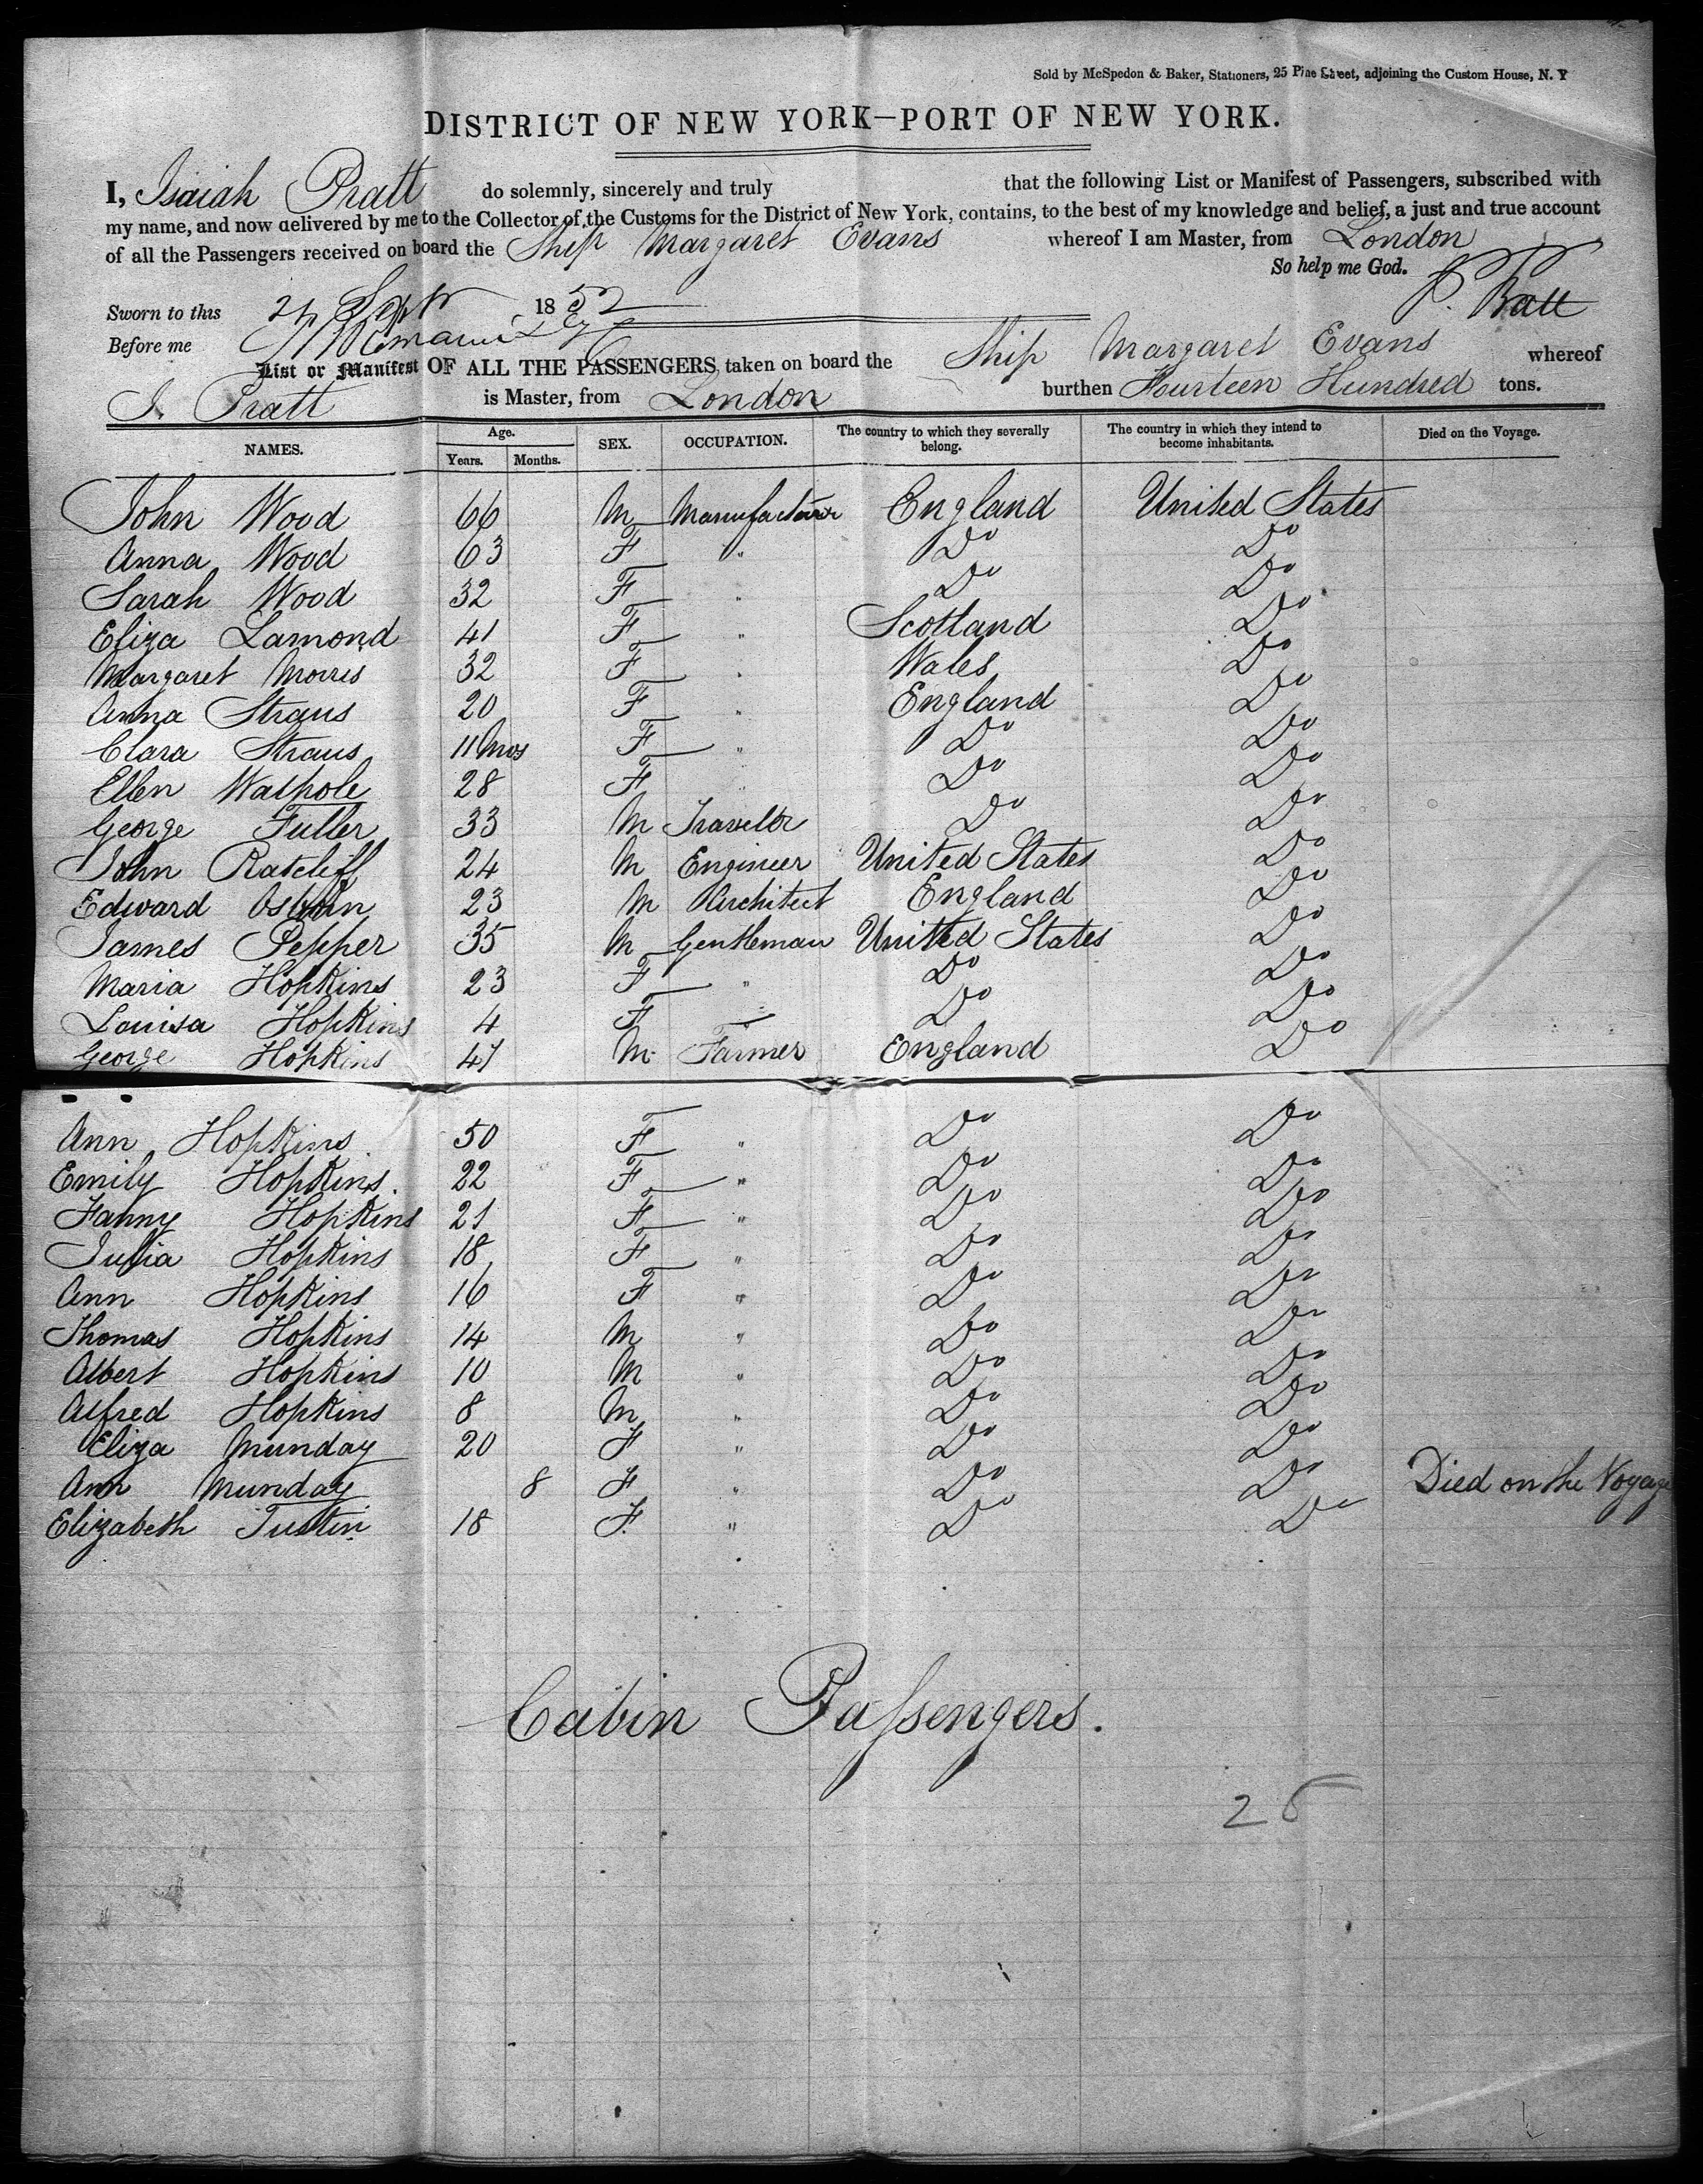 Sold by McSpedon & Baker, Stationers, 25 Pine Street, adjoining the Custom House, N. Y
DISTRICT OF NEW YORK—PORT OF NEW YORK.
I, Isaiah Pratt do solemnly, sincerely and truly that the following List or Manifest of Passengers, subscribed with
my name, and now delivered by me to the Collector of the Customs for the District of New York, contains, to the best of my knowledge and belief, a just and true account
of all the Passengers received on board the Ship Margaret Evans whereof I am Master, from London
So help me God.
Sworn to this Sept 1852 Pratt
Before me
List or Manifest OF ALL THE PASSENGERS taken on board the Ship Margaret Evans whereof
I. Pratt is Master, from London burthen Fourteen Hundred tons.
NAMES. Age. Years. Months. SEX. OCCUPATION. The country to which they severally belong. The country in which they intend to become inhabitants. Died on the Voyage.
John Wood 66 M Manufacturer England United States
Anna Wood 63 F " Do Do
Sarah Wood 32 F " Do Do
Eliza Lamond 41 F " Scotland Do
Margaret Morris 32 F " Wales Do
Anna Straus 20 F " England Do
Clara Straus 11 Mos F " Do Do
Ellen Walpole 28 F Do Do
George Fuller 33 M Traveller Do Do
John Ratcliff 24 M Engineer United States Do
Edward Osborn 23 M Architect England Do
James Pepper 35 M Gentleman United States Do
Maria Hopkins 23 F " Do Do
Louisa Hopkins 4 F " Do Do
George Hopkins 47 M Farmer England Do
Ann Hopkins 50 F " Do Do
Emily Hopkins 22 F " Do Do
Fanny Hopkins 21 F " Do Do
Julia Hopkins 18 F " Do Do
Ann Hopkins 16 F " Do Do
Thomas Hopkins 14 M " Do Do
Albert Hopkins 10 M " Do Do
Alfred Hopkins 8 M " Do Do
Eliza Munday 20 F " Do Do
Ann Munday 8 F " Do Do Died on the Voyage
Elizabeth Tustin 18 F. " Do Do
Cabin Passengers.